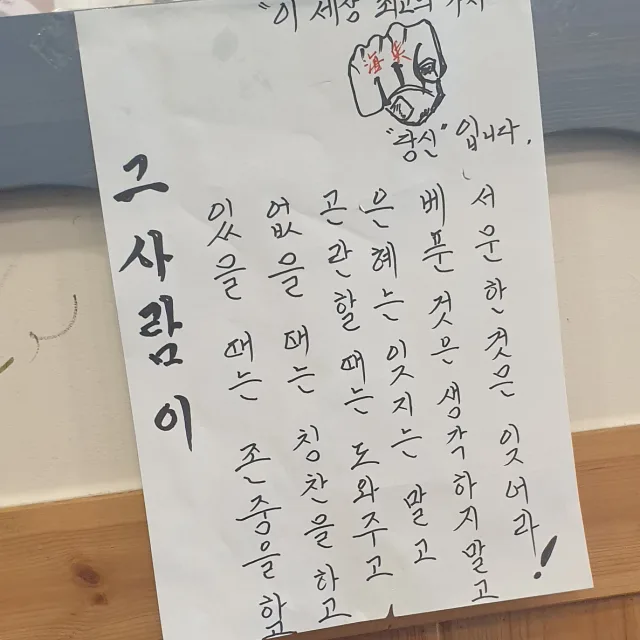 "이 세상 최고의
"당신" 입니다.
그 사람이
있을 때는 존중을 하고
없을 때는 칭찬을 하고
곤란할 때는 도와주고
은혜는 잊지는 말고
베푼 것은 생각하지말고
서운한것은 잊어라!